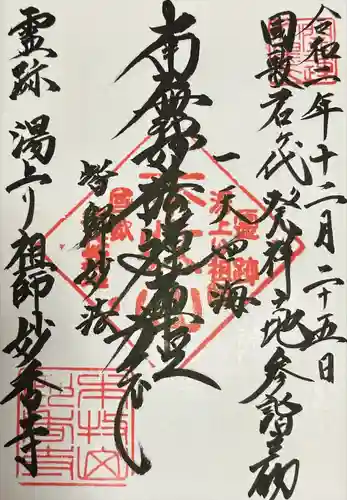 令和二年十二月二十五日
国歌君ヶ代発祥之地参詣之砌
一天四海
南無妙法蓮華経
皆帰妙法
霊跡 湯上り祖師 妙香寺
霊跡
湯上り祖師
本牧山
妙香寺